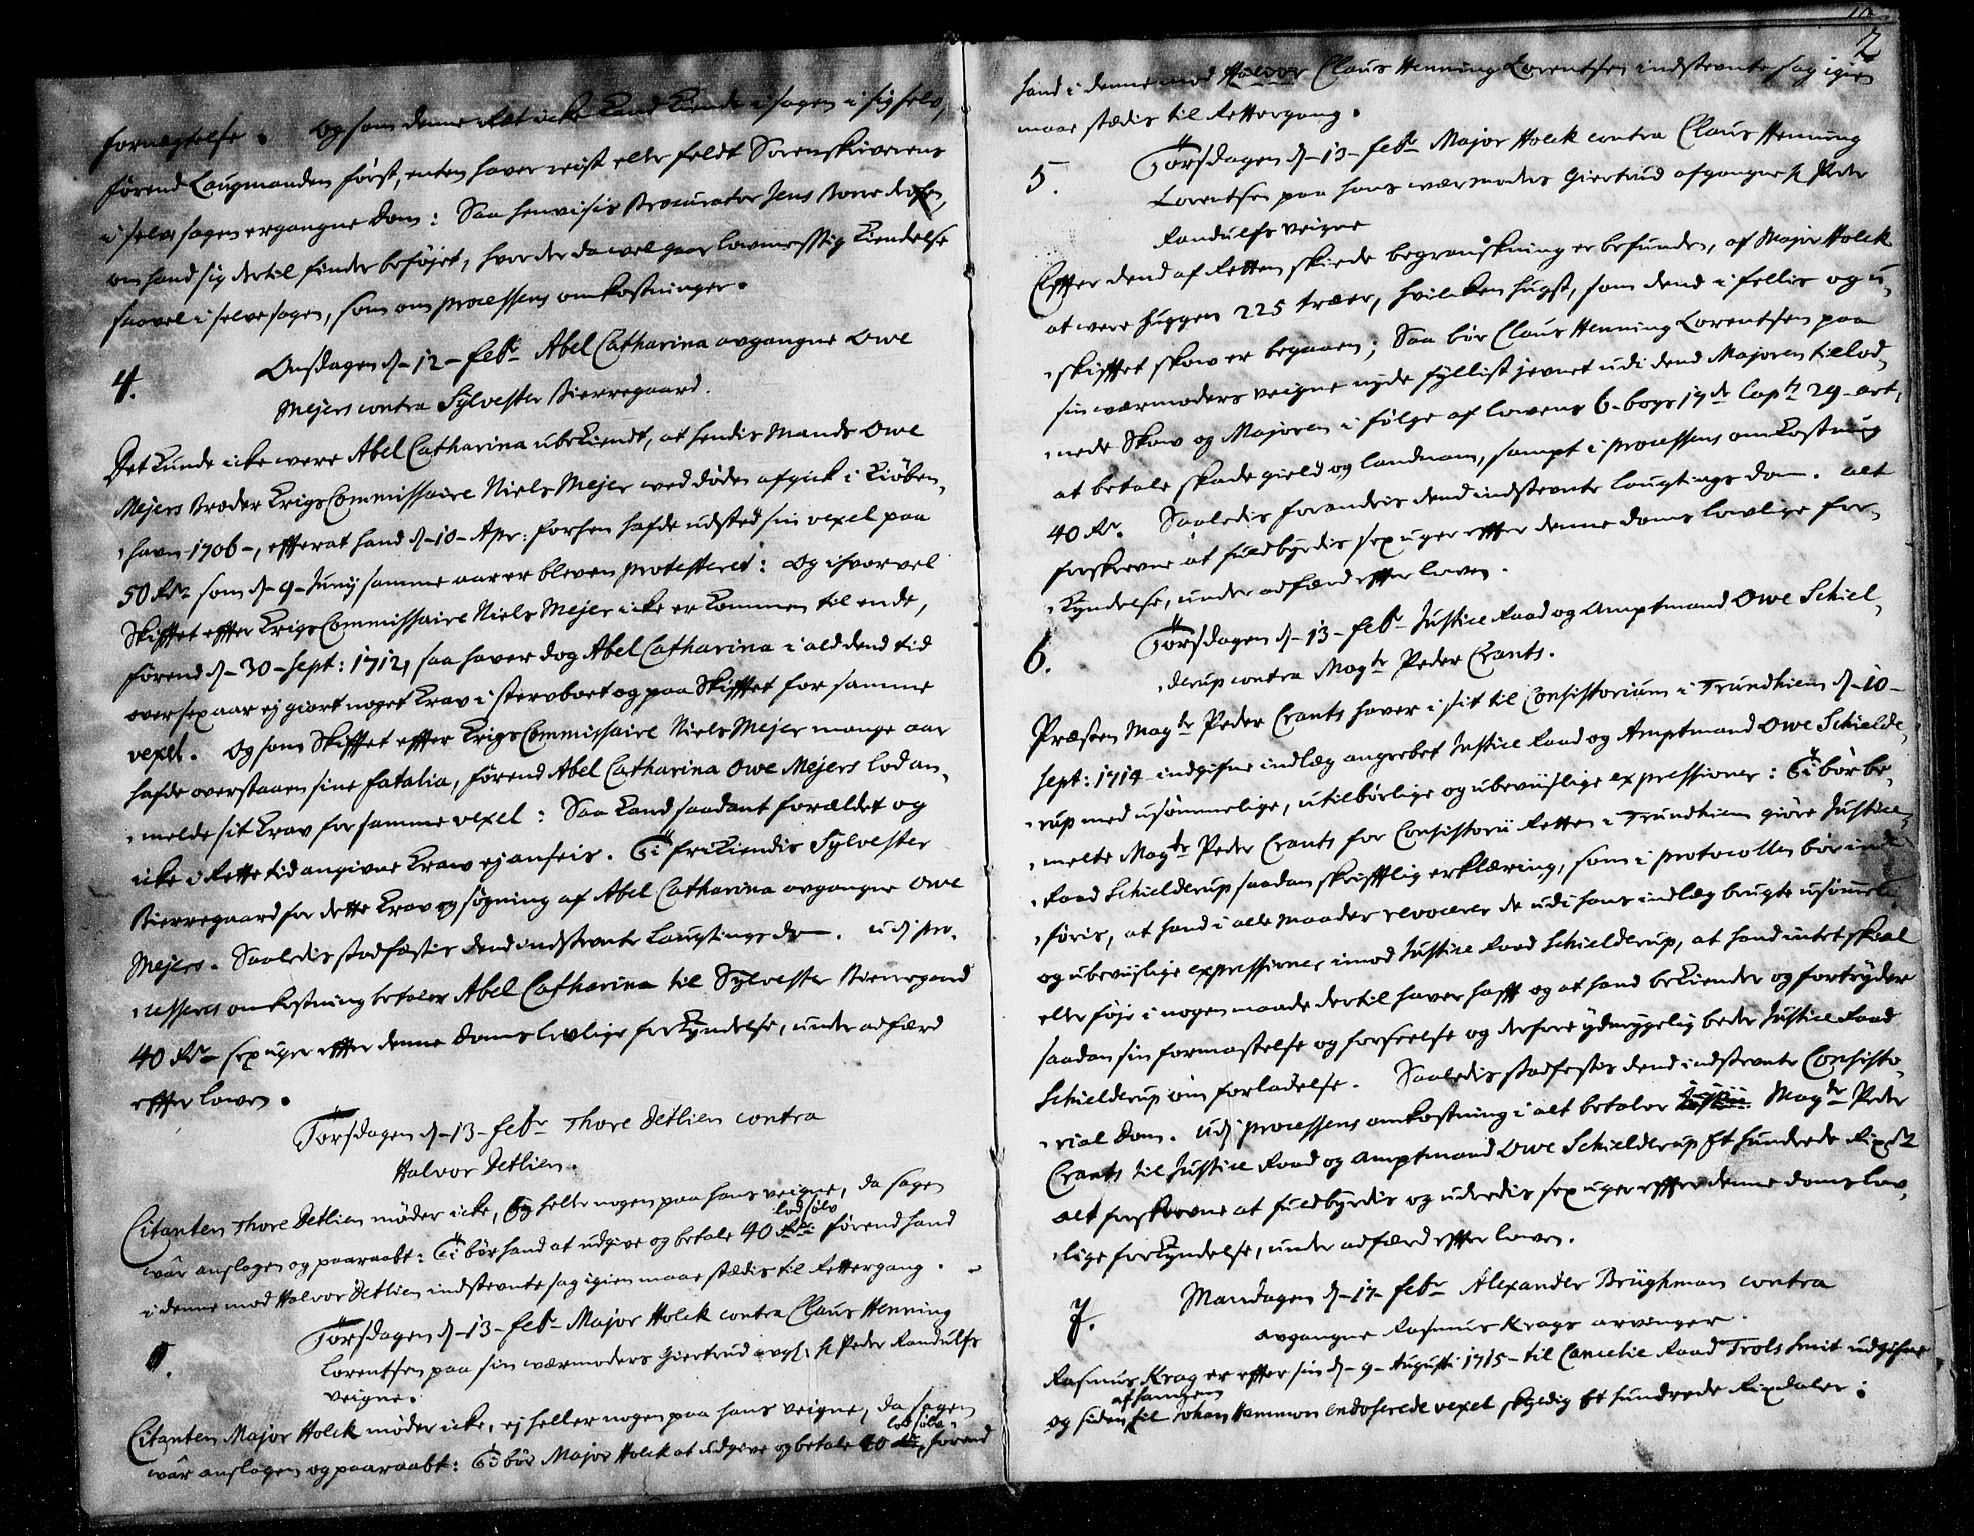 fornegtelse. Og som denne Ræt icke kand kiende i sagen i sig selv,
førend Laugmanden først, enten haver reist eller feldt Sorenskriverens
i selve sagen ergangne dom: Saa henvisis Procurator Jens
om hand sig dertil finder beføjet, hvor der da vel gaar lovmessig kiendelse
saavel i selve sagen, som om processens omkostninger.
4. Onsdagen d. 12 febr. Abel Catharina avgangne Owe
Mejers contra Sylvester Bierregaard.
Det kunde icke were Abel Catharina ubekiendt, at hendis Mands Owe
Mejers Broder KrigsCommissaire Niels Mejer ved døden afgick i Kiøben-
-havn 1706, effter at hand d. 10 Apr: forhen hafde udsted sin vexel paa
50 Rdr som d. 9 Junij samme aar er bleven protesteret: Og ihvorvel
Skifftet effter KrigsCommissaire Niels Mejer icke er kommen til ende,
førend d. 30 Sept: 1712, saa haver dog Abel Catharina i ald dend tid
over sex aar ej giort noget krav i sterboet og paa Skifftet for samme
vexel. Og som Skifftet effter KrigsCommissaire Niels Mejer mange aar
hafde overstaaen sine fatalia, førend Abel Catharina Owe Mejers lod an-
-melde sit krav for samme vexel: Saa kand saadant forældet og
icke i Rette tid angivne krav ej anseis. Ti frikiendis Sylvester
Bierregaard for dette krav og søgning af Abel Catharina avgangne Owe
Mejers. Saaledis stadfæstis dend indstevnte Laugtings dom. udj pro-
-cessens omkostning betaler Abel Catharina til Sylvester Bierregaard
40 Rdr sex uger effter denne Doms lovlige forkyndelse, under adfærd
effter loven.
Torsdagen d. 13 febr Thore Detlien contra
Halvor Detlien.
Citanten Thore Detlien møder icke, Ej heller nogen paa hans veigne, da sagen
lod sølv
wâr anslagen og paaraabt: Ti bør hand at udgive og betale 40 Rdr: førend hand
i denne mod Halvor Detlien indstevnte sag igien maae stædis til Rettergang.
Torsdagen d. 13 febr Major Holck contra Claus Henning
Lorentsen paa sin værmoders Giertrud avg: Sl Peder Randulfs
veigne.
Citanten Major Holck møder icke, ej heller nogen paa hans veigne, da sagen
lod sølv
wâr anslagen og paaraabt: Ti bør Major Holck at udgive og betale 40 førend
2
hand i denne mod Halvor Claus Henning Lorentsen indstevnte sag igien
maae stædis til Rettergang.
5. Torsdagen d. 13 febr Major Holck contra Claus Henning
Lorentsen paa hans værmoders Giertrud afgangne Sl Peder
Randulfs veigne
Effter dend af Retten skiede begranskning er befunden, af Major Holck
at were huggen 225 træer, hvilcken hugst, som dend i fellis og u-
-skifftet skow er begaaen; Saa bør Claus Henning Lorentsen paa
sin værmoders veigne nyde fyllist jevnet udi dend Majoren tillod-
-nede Skow og Majoren i følge af lovens 6. bogs 17de Capt: 29 art,
at betale skadegield og landnam, sampt i processens omkostning
40 Rdr. Saaledis forandris dend indstevnte laugtings dom. alt
forskrevne at fuldbyrdis sex uger effter denne doms lovlige for-
-kyndelse, under adfærd effter loven.
6. Torsdagen d. 13 febr Justice Raad og Amptmand Owe Schiel-
-derup contra Magtr Peder Crants.
Præsten Magtr Peder Crants haver i sit til Consistorium i Trundhiem d. 10
Sept: 1714 indgifne indlæg angrebet Justice Raad og Amptmand Owe Schielde-
-rup med usømmelige, utilbørlige og ubeviislige expressioner: Ti bør be-
-melte Magtr Peder Crants for Consistorii Retten i Trundhiem giøre Justice
-Raad Schielderup saadan skrifftlig erklæring, som i protocollen bør ind-
-føris, at hand i alle maader revocerer de udi hans indlæg brugte usømmelige
og ubeviislige expressioner imod Justice Raad Schielderup, at hand intet skiel
eller føje i nogen maade dertil haver hafft og at hand bekiender og fortryder
saadan sin formastelse og forseelse og derfore ydmygelig beder Justice Raad
Schielderup om forladelse. Saaledis stadfestes dend indstevnte Consisto-
-rial dom. Udj processens omkostning i alt betaler Magtr Peder
Crants til Justice Raad og Amptmand Owe Schielderup Et hundrede Rixdr
alt forskrevne at fuldbyrdis og uderedis sex uger effter denne doms lov-
-lige forkyndelse, under adfærd effter loven.
7. Mandagen d. 17 febr Alexander Brüghman contra
avgangne Rasmus Krags arvinger.
Rasmus Krag er effter sin d. 9 Augusti 1715 til Cancelie Raad Trols Smit udgifne
af hannem
og siden til Johan Hammon endosserede vexel skyldig et hundrede Rixdaler: